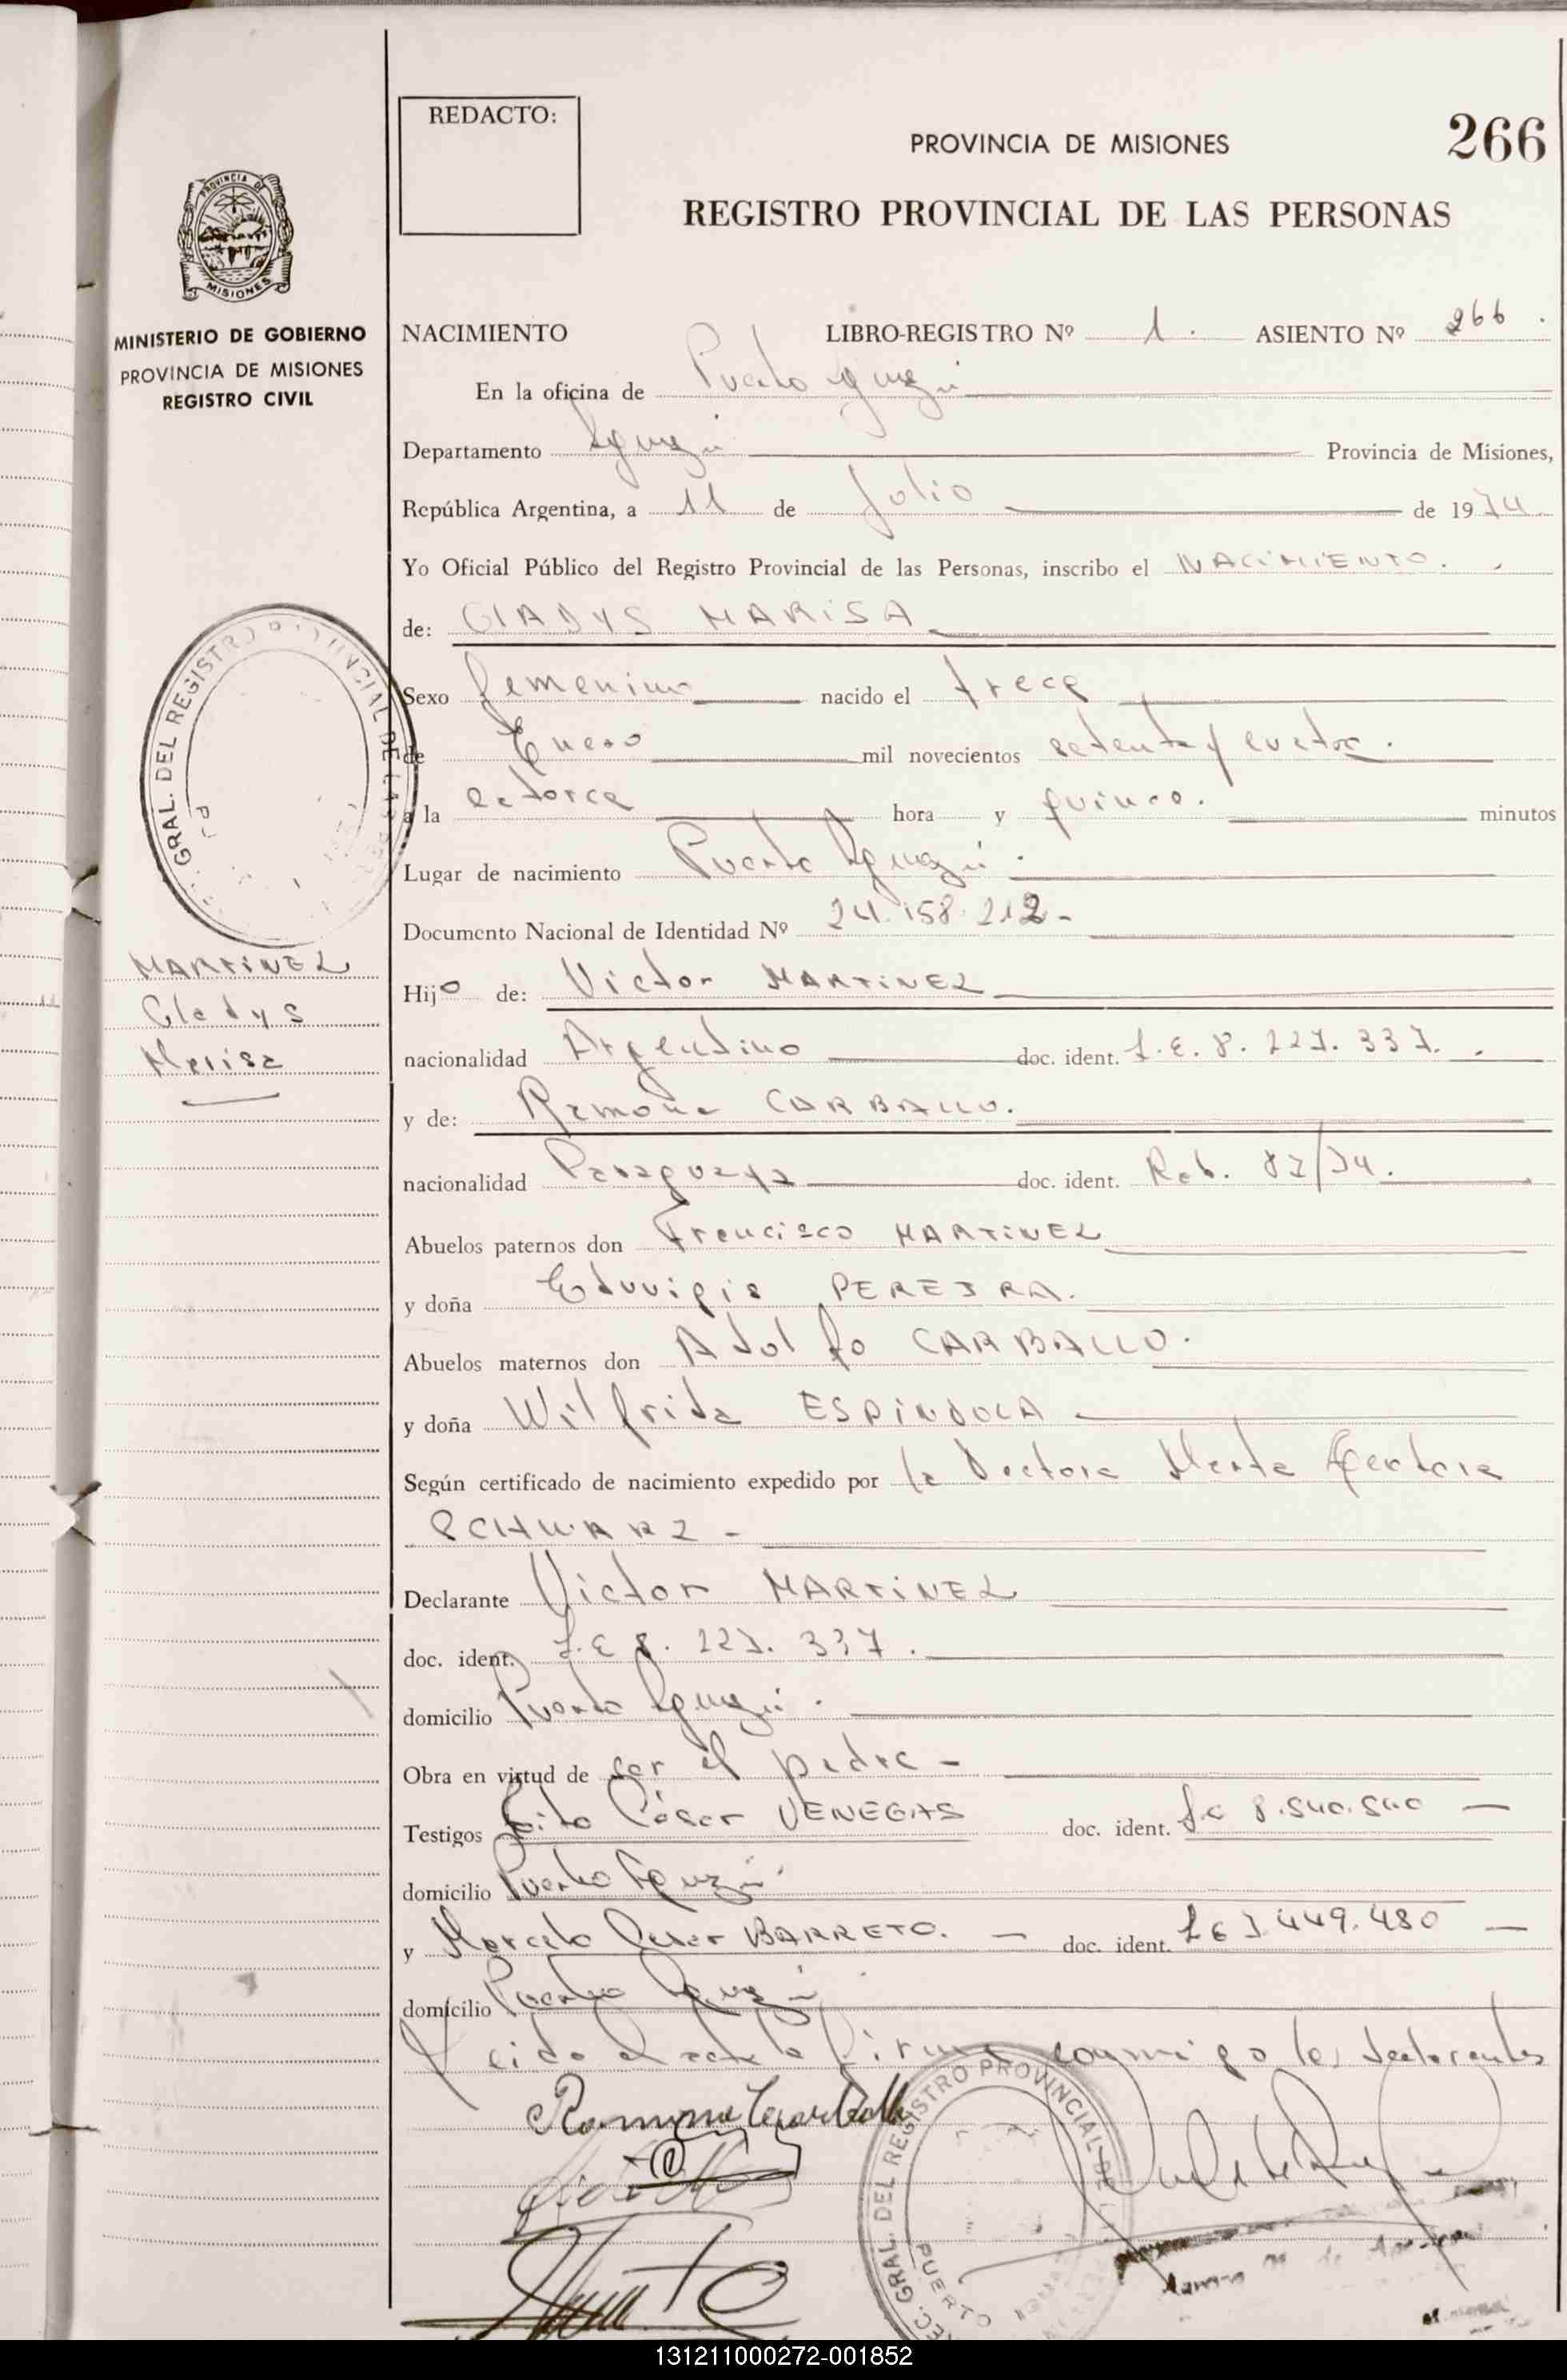 REDACTO:
PROVINCIA DE MISIONES
266
REGISTRO PROVINCIAL DE LAS PERSONAS
PROVINCIA DE
MISIONES
MINISTERIO DE GOBIERNO
PROVINCIA DE MISIONES
REGISTRO CIVIL
NACIMIENTO LIBRO-REGISTRO Nº 1. ASIENTO Nº 266.
En la oficina de Puerto Iguazú
Departamento Iguazú Provincia de Misiones,
República Argentina, a 11 de Julio de 1974
Yo Oficial Público del Registro Provincial de las Personas, inscribo el NACIMIENTO.
de: GLADYS MARISA
Sexo femenino nacido el trece
de Enero mil novecientos setenta y cuatro.
a la catorce hora y quince. minutos
Lugar de nacimiento Puerto Iguazú.
Documento Nacional de Identidad Nº 24.158.212-
GRAL. DEL REGISTRO PROVINCIAL DE LAS
MARTINEZ
Gladys
Marisa
Hijo de: Victor MARTINEZ
nacionalidad Argentino doc. ident. L.E. 8.227.337.
y de: Ramona CARBALLO.
nacionalidad Paraguaya doc. ident. Reb. 87/74.
Abuelos paternos don Francisco MARTINEZ
y doña Eduvigis PEREIRA.
Abuelos maternos don Adolfo CARBALLO.
y doña Wilfrida ESPINDOLA
Según certificado de nacimiento expedido por la Doctora Marta
SCHWARZ-
Declarante Victor MARTINEZ
doc. ident. L.E 8.227.337.
domicilio Puerto Iguazú.
Obra en virtud de ser el padre-
Testigos César VENEGAS doc. ident. L.E 8.540.540
domicilio Puerto Iguazú
y Marcelo BARRETO. doc. ident. L E 7.449.480
domicilio Puerto Iguazú
Leida el acta firma conmigo los declarantes
Ramona Carballo
GRAL. DEL REGISTRO PROVINCIAL DE
PUERTO
131211000272-001852